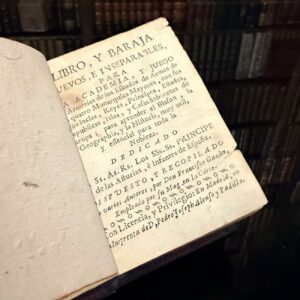 LIBRO, Y BARAJA
UEVOS, E INSEPARABLES,
PARA
A ACADEMIA, Y JUEGO
Armerias de los Escudos de Armas de
quatro Monarquias Mayores, con sus
ovincias, Reynos, Principes, Estados,
epublicas, Islas, y Casas Soberanas de
ropa, para aprender el Blason, la
Geographia, y la Historia, muy util,
y essencial para toda la
Nobleza;
DEDICADO
Ss. As. Rs. Los SSs. Ss. PRINCIPE
de las Asturias, è Infantes de España.
SPUESTO, Y RECOPILADO
varios Autores, por Don Francisco Gazán,
Empleado por su Mag. en la Corte.
on Licencia, y Privilegio: En Madrid, en
Imprenta de D. Pedro Joseph Alonso y Padilla.